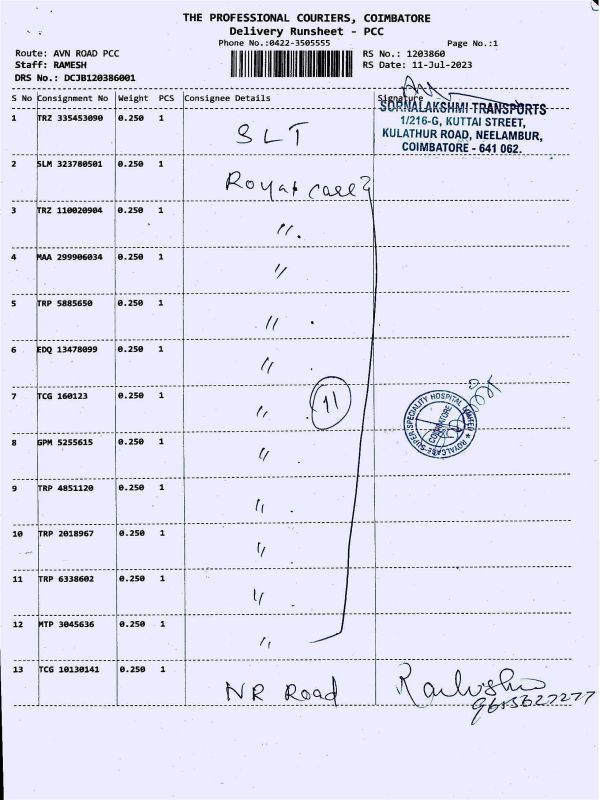 THE PROFESSIONAL COURIERS, COIMBATORE
Delivery Runsheet - PCC
Phone No.:0422-3505555 Page No.:1
Route: AVN ROAD PCC RS No.: 1203860
Staff: RAMESH RS Date: 11-Jul-2023
DRS No.: DCJB120386001
S No Consignment No Weight PCS Consignee Details Signature
SORNALAKSHMI TRANSPORTS
1/216-G, KUTTAI STREET,
KULATHUR ROAD, NEELAMBUR,
COIMBATORE - 641 062.
1 TRZ 335453090 0.250 1 SLT
2 SLM 323780501 0.250 1 Royal care
3 TRZ 110020904 0.250 1 "
4 MAA 299906034 0.250 1 "
5 TRP 5885650 0.250 1 "
6 EDQ 13478099 0.250 1 "
7 TCG 160123 0.250 1 " 11
ROYALCARE SUPER SPECIALITY HOSPITAL LIMITED
COIMBATORE
8 GPM 5255615 0.250 1 "
9 TRP 4851120 0.250 1 "
10 TRP 2018967 0.250 1 "
11 TRP 6338602 0.250 1 "
12 MTP 3045636 0.250 1 "
13 TCG 10130141 0.250 1 NR Road